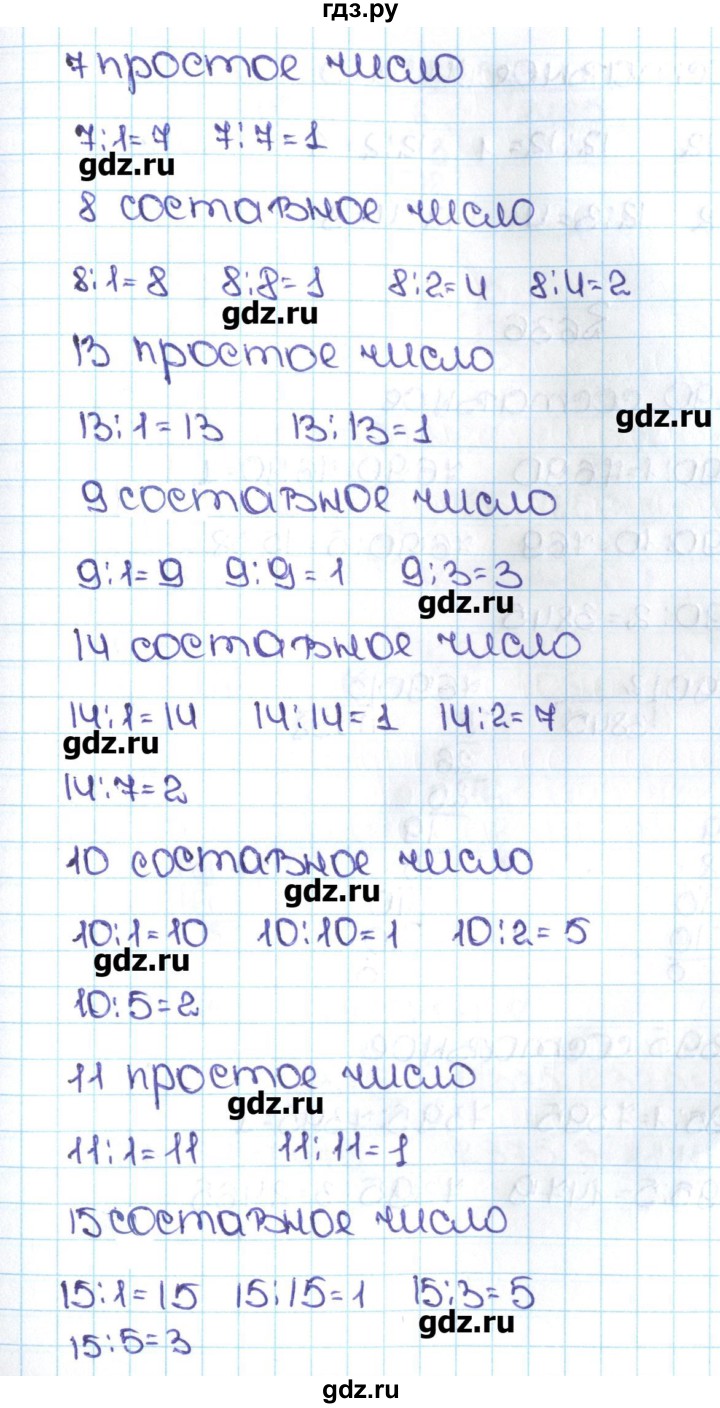 гдз.ру
7 простое число
7:1=7 7:7=1
gdz.ru
8 составное число
8:1=8 8:8=1 8:2=4 8:4=2
gdz.ru
13 простое число
gdz.ru
13:1=13 13:13=1
9 составное число
9:1=9 9:9=1 9:3=3
gdz.ru
14 составное число
14:1=14 14:14=1 14:2=7
gdz.ru
14:7=2
10 составное число
gdz.ru
10:1=10 10:10=1 10:2=5
gdz.ru
10:5=2
11 простое число
gdz.ru
11:1=11 11:11=1
15 составное число
15:1=15 15:15=1 15:3=5
gdz.ru
15:5=3
gdz.ru